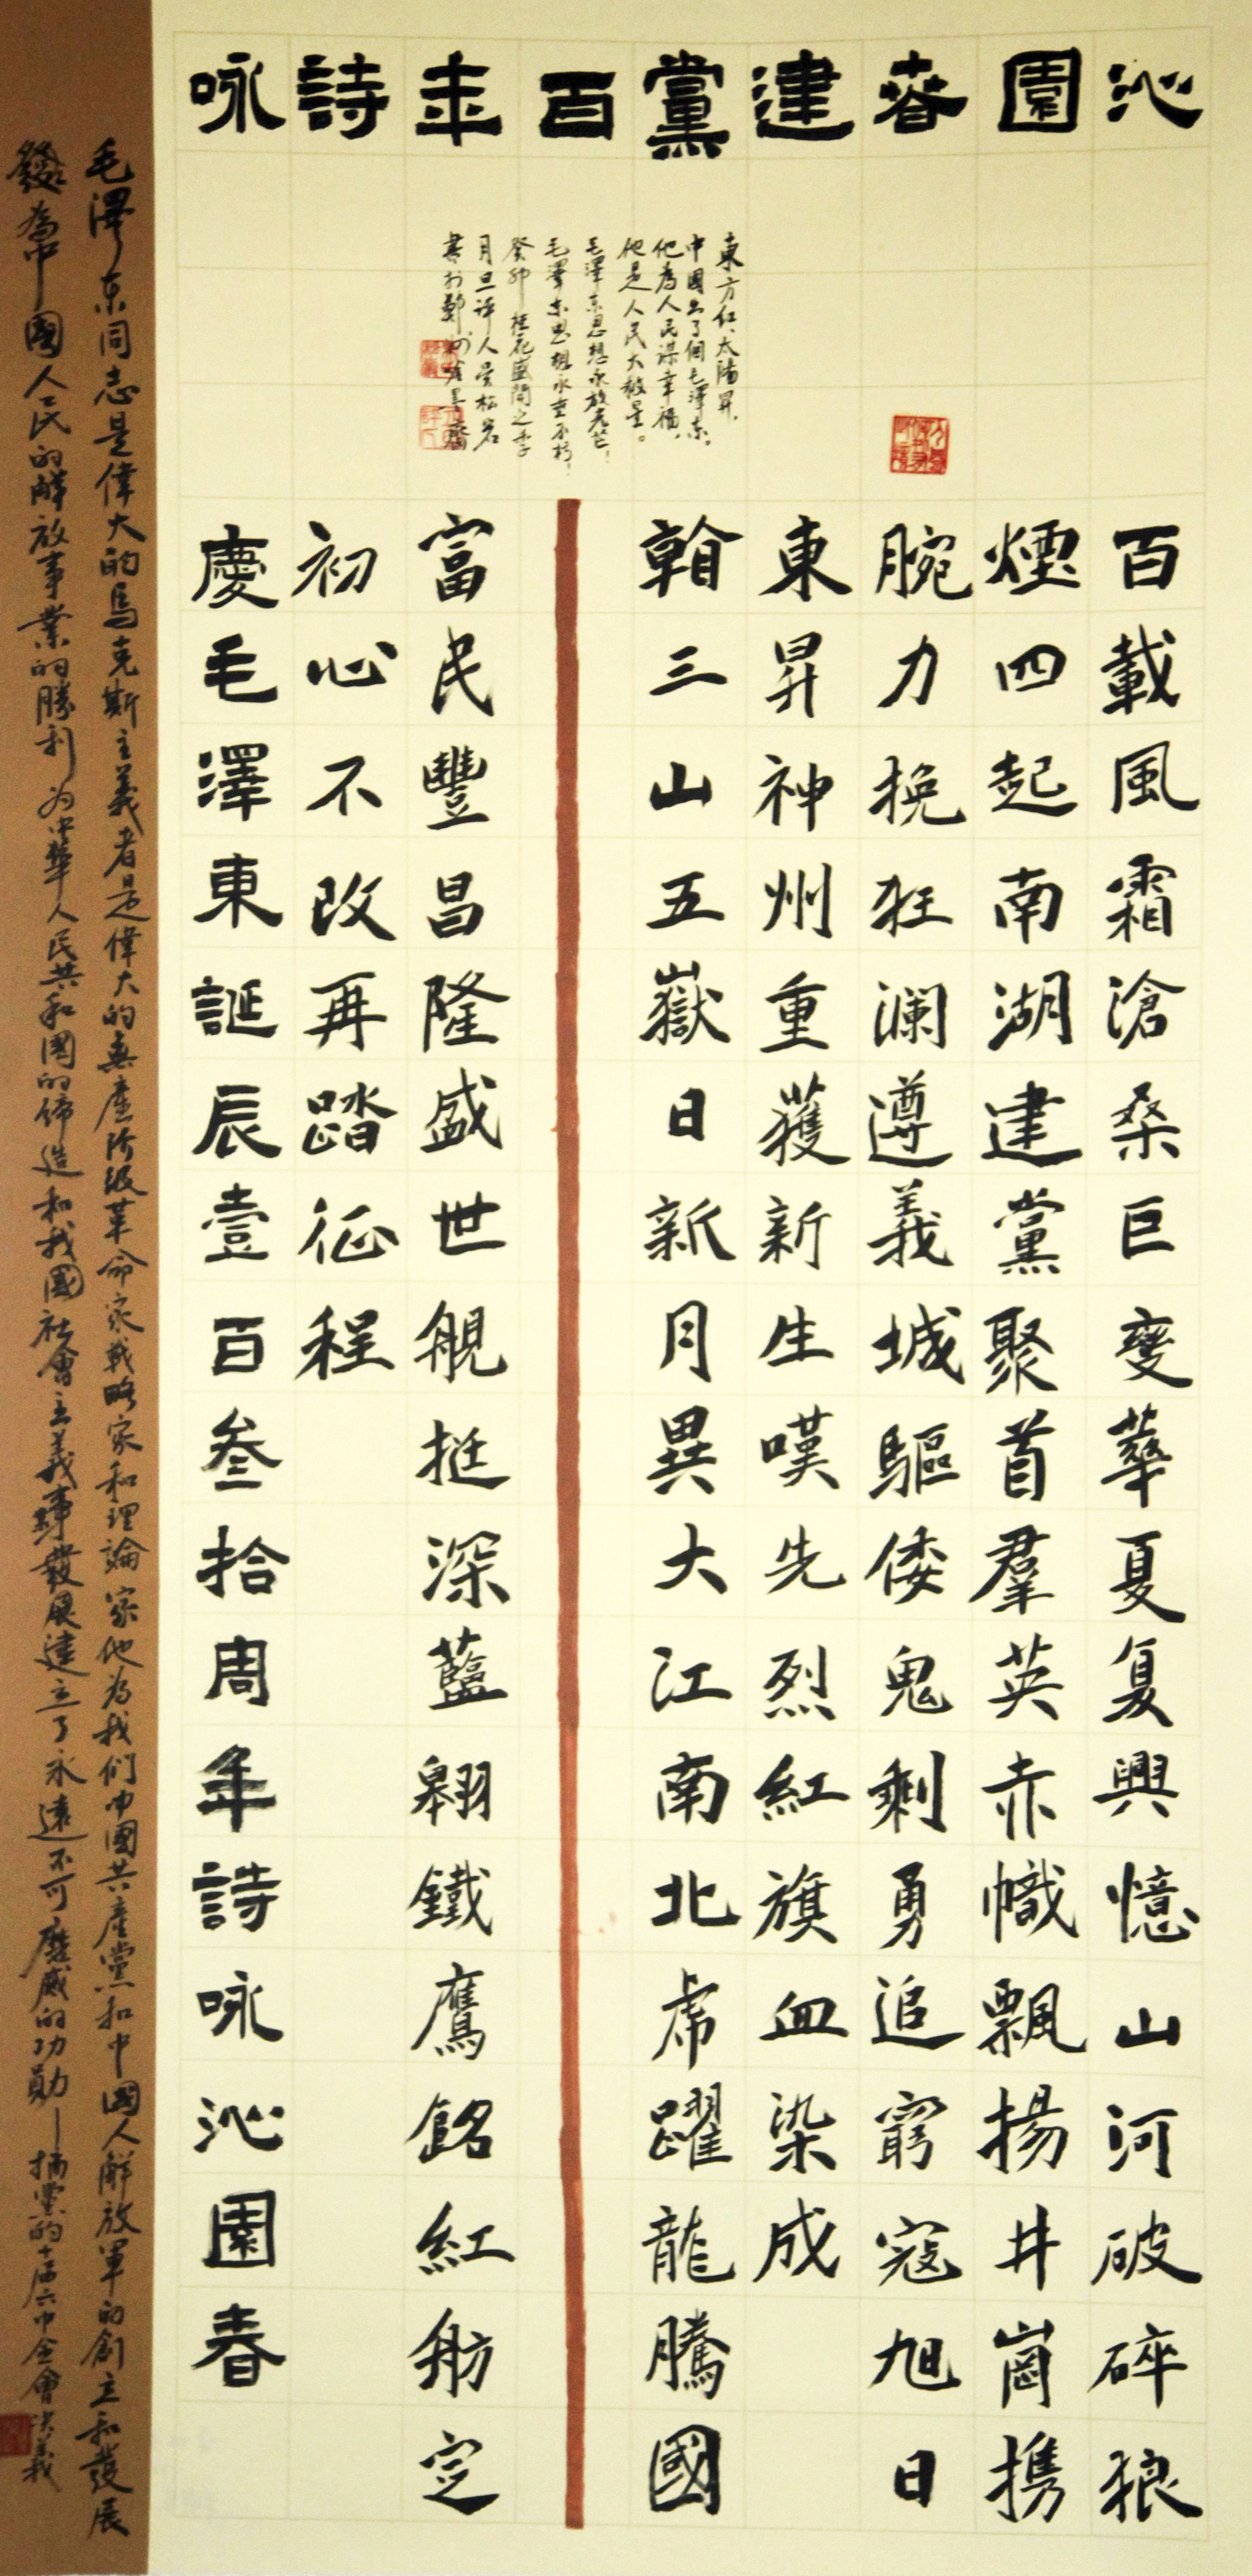 沁園春建黨百年詩咏
百載風霜滄桑巨變華夏复興憶山河破碎狼
煙四起南湖建黨聚首羣英赤幟飄揚井崗携
腕力挽狂瀾遵義城驅倭鬼剩勇追窮寇旭日
東昇神州重獲新生嘆先烈紅旗血染成
翰三山五嶽日新月異大江南北虎躍龍騰國
富民豐昌隆盛世舰挺深藍翱鐵鷹銘紅舫定
初心不改再踏征程
慶毛澤東誕辰壹百叁拾周年詩咏沁園春
東方红、太陽昇,
中國出了個毛澤東。
他為人民謀幸福、
他是人民大救星。
毛澤东思想永放光芒!
毛澤东思想永垂不朽!
癸卯桂花盛開之季
月旦評人松岩
書於鄭州
毛澤东同志是偉大的馬克斯主義者是偉大的無產阶级革命家戰略家和理論家他为我们中國共產黨和中國人解放軍的創立和發展
發為中國人民的解放事業的勝利为中華人民共和國的缔造和我國社會主義事業發展建立了永遠不可磨滅的功勛—摘黨的十一届六中全會决義